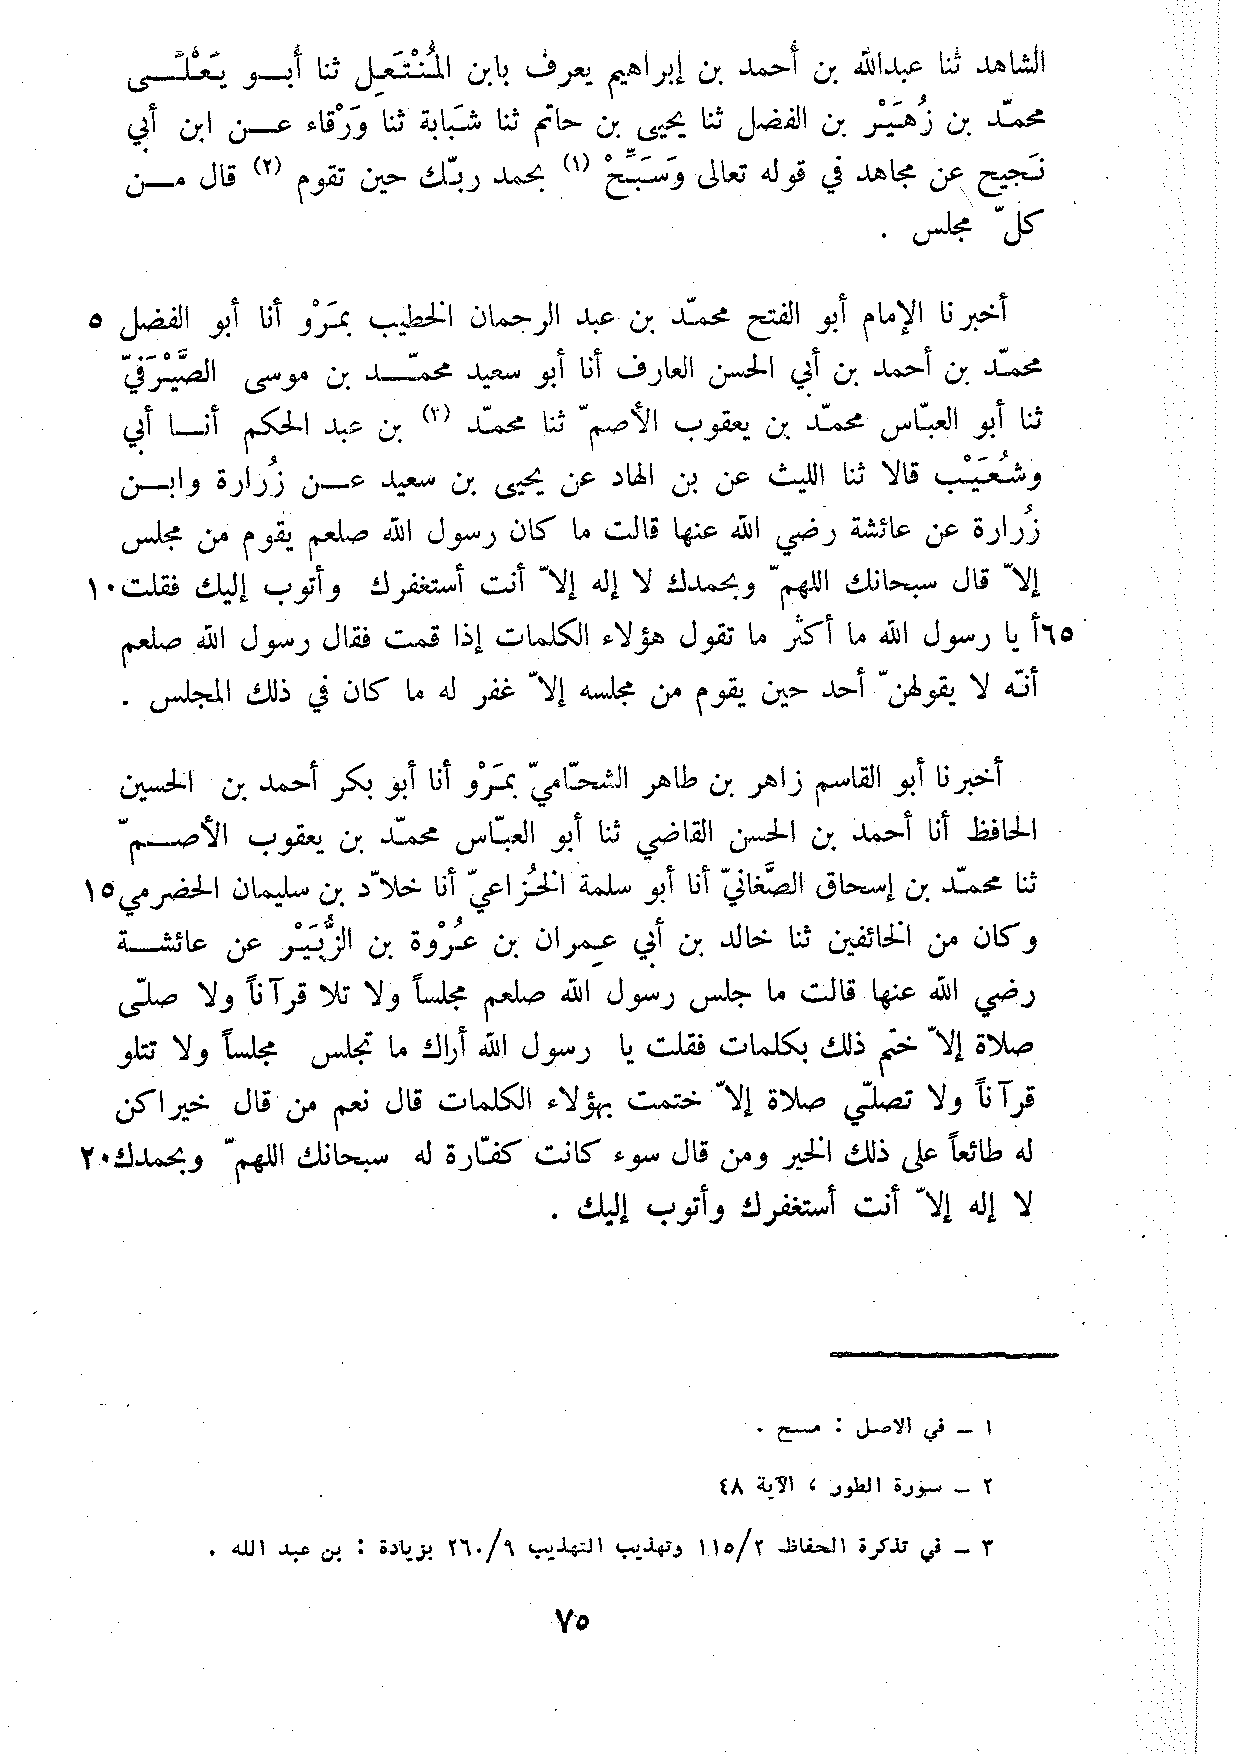 الشاهد ثنا عبدالله بن أحمد بن إبراهيم يعرف بابن المُنْتَعِل ثنا أبو يَعْلَى
محمّد بن زُهَيْر بن الفضل ثنا يحيى بن حاتم ثنا شَبَابة ثنا وَرْقاء عن ابن أبي
نَجيح عن مجاهد في قوله تعالى وَسَبِّحْ (١) بحمد ربّك حين تقوم (٢) قال من
كلّ مجلس .
أخبرنا الإمام أبو الفتح محمّد بن عبد الرحمان الخطيب بمَرْو أنا أبو الفضل ٥
محمّد بن أحمد بن أبي الحسن العارف أنا أبو سعيد محمّد بن موسى الصَّيْرَفيّ
ثنا أبو العبّاس محمّد بن يعقوب الأصمّ ثنا محمّد (٣) بن عبد الحكم أنا أبي
وشُعَيْب قالا ثنا الليث عن بن الهاد عن يحيى بن سعيد عن زُرارة وابن
زُرارة عن عائشة رضي الله عنها قالت ما كان رسول الله صلعم يقوم من مجلس
إلاّ قال سبحانك اللهمّ وبحمدك لا إله إلاّ أنت أستغفرك وأتوب إليك فقلت ١٠
٦٥أ يا رسول الله ما أكثر ما تقول هؤلاء الكلمات إذا قمت فقال رسول الله صلعم
أنّه لا يقولهنّ أحد حين يقوم من مجلسه إلاّ غفر له ما كان في ذلك المجلس .
أخبرنا أبو القاسم زاهر بن طاهر الشحّاميّ بمَرْو أنا أبو بكر أحمد بن الحسين
الحافظ أنا أحمد بن الحسن القاضي ثنا أبو العبّاس محمّد بن يعقوب الأصمّ
ثنا محمّد بن إسحاق الصَّغانيّ أنا أبو سلمة الخُزاعيّ أنا خلاّد بن سليمان الحضرمي ١٥
وكان من الخائفين ثنا خالد بن أبي عِمران بن عُرْوة بن الزُّبَيْر عن عائشة
رضي الله عنها قالت ما جلس رسول الله صلعم مجلساً ولا تلا قرآناً ولا صلّى
صلاة إلاّ ختم ذلك بكلمات فقلت يا رسول الله أراك ما تجلس مجلساً ولا تتلو
قرآناً ولا تصلّي صلاة إلاّ ختمت بهؤلاء الكلمات قال نعم من قال خيراً كن
له طائعاً على ذلك الخير ومن قال سوء كانت كفّارة له سبحانك اللهمّ وبحمدك ٢٠
لا إله إلاّ أنت أستغفرك وأتوب إليك .
١ – في الاصل : مسح .
٢ – سورة الطور ، الآية ٤٨
٣ – في تذكرة الحفاظ ١١٥/٢ وتهذيب التهذيب ٢٦٠/٩ بزيادة : بن عبد الله .
٧٥